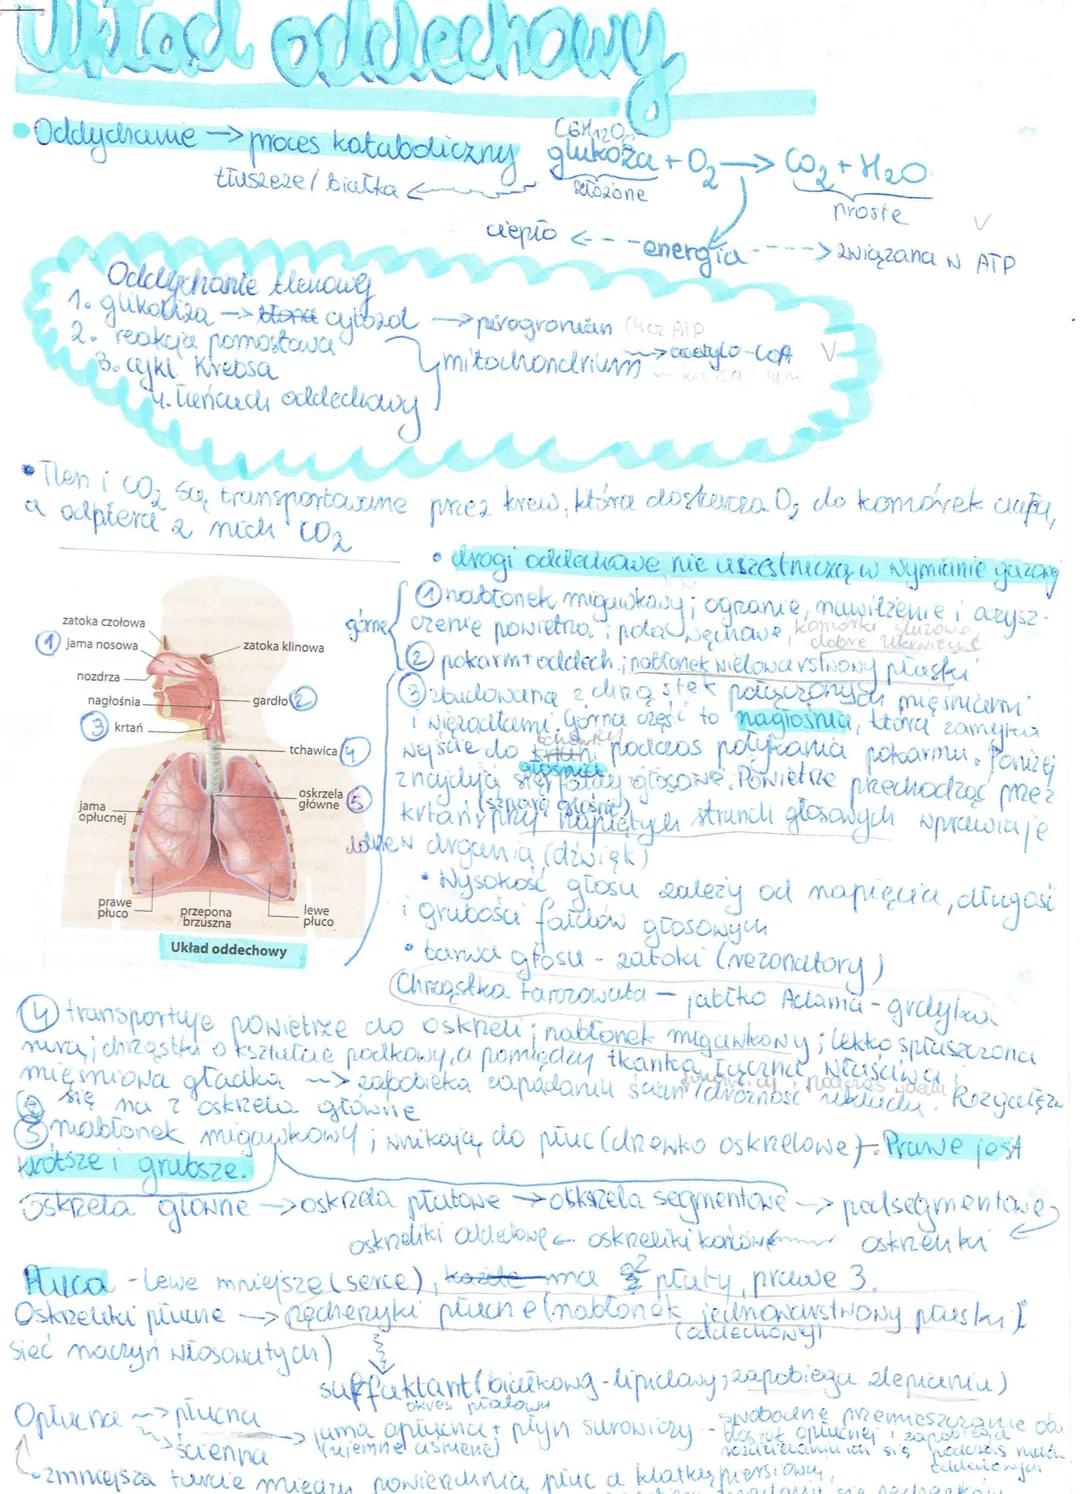 Układ oddechowy
• Oddychanie → proces kataboliczny
C6H12O6
glukoza + O2 → CO2 + H2O
tłuszcze / białka
złożone
proste
ciepło ← energia → związana w ATP
Oddychanie tlenowe
1. glikoliza → cytozol → pirogronian
2. reakcja pomostowa
mitochondrium → acetylo-CoA
3. cykl Krebsa
4. łańcuch oddechowy
• Tlen i CO2 są transportowane przez krew, która dostarcza O2 do komórek ciała,
a odbiera z nich CO2
• drogi oddechowe nie uczestniczą w wymianie gazowej
górne
① nabłonek migawkowy; ogranie, nawilżenie i oczysz-
czenie powietrza; pole węchowe, komórki śluzowe,
dobre ukrwienie
② pokarm + oddech.; nabłonek wielowarstwowy płaski
③ zbudowana z chrząstek połączonych mięśniami
i więzadłami. Górna część to nagłośnia, która zamyka
wejście do krtani podczas połykania pokarmu. Poniżej
głośnia
znajdują się fałdy głosowe. Powietrze przechodząc przez
(szparę głośni)
krtań przy napiętych strunach głosowych wprawia je
w drgania (dźwięk)
• Wysokość głosu zależy od napięcia, długości
i grubości fałdów głosowych
• barwa głosu - zatoki (rezonatory)
Chrząstka tarczowata — jabłko Adama - grdyka
zatoka czołowa
① jama nosowa
zatoka klinowa
nozdrza
nagłośnia
gardło ②
③ krtań
tchawica ④
oskrzela
główne ⑤
jama
opłucnej
dolne
prawe
płuco
przepona
brzuszna
lewe
płuco
Układ oddechowy
④ transportuje powietrze do oskrzeli; nabłonek migawkowy; lekko spłaszczona
rura; chrząstki o kształcie podkowy, a pomiędzy tkanka łączna właściwa i
mięśniowa gładka → zapobieka zapadaniu ścian / drożność układu. Rozgałęzia
się na 2 oskrzela główne
⑤ nabłonek migawkowy; wnikają do płuc (drzewko oskrzelowe). Prawe jest
krótsze i grubsze.
oskrzela główne → oskrzela płatowe → oskrzela segmentowe → podsegmentowe
oskrzeliki oddechowe ← oskrzeliki końcowe ← oskrzeliki
Płuca - Lewe mniejsze (serce), każde ma 2 płaty, prawe 3.
Oskrzeliki płucne → pęcherzyki płucne (nabłonek jednowarstwowy płaski i
(oddechowy)
sieć naczyń włosowatych)
surfaktant (białkowo-lipidowy; zapobiega zlepianiu)
okres płodowy
Opłucna → płucna
→ ścienna
→ jama opłucna + płyn surowiczy - swobodne przemieszczanie obu
(ujemne ciśnienie)
blaszek opłucnej i zapobiega
rozdzielaniu ich się podczas ruchów
oddechowych
- zmniejsza tarcie między powierzchnią płuc a klatką piersiową,